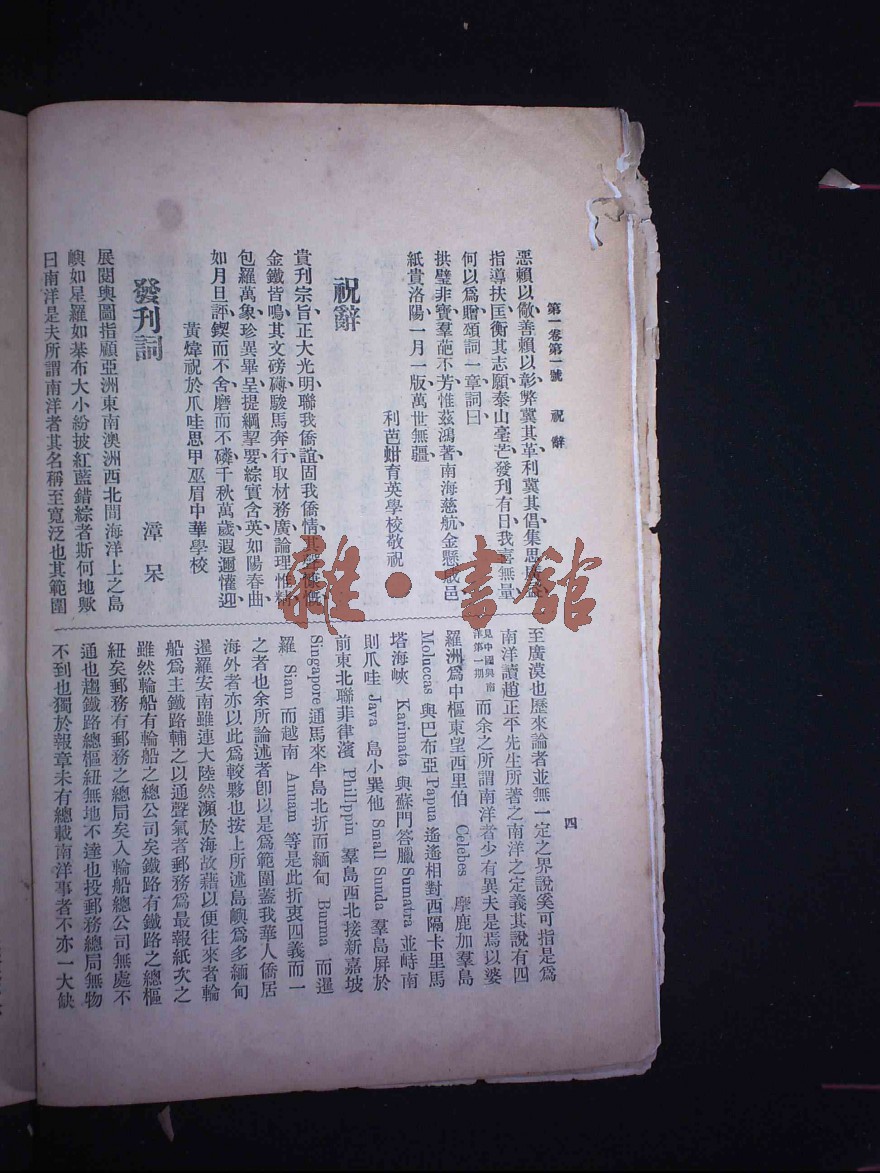 第一卷第一號 祝辭
四
惡賴以儆善賴以彰弊冀其革利冀其倡集思
指導扶匡衡其志願泰山毫芒發刊有日我喜無量
何以爲贈頌詞一章詞曰
拱璧非寶羣葩不芳惟茲鴻著南海慈航金懸 邑
紙貴洛陽一月一版萬世無疆
利芭蚶育英學校敬祝
祝辭
貴刊宗旨正大光明聯我僑誼固我僑情其
金鐵皆鳴其文磅礴駿馬奔行取材務廣論理惟精
包羅萬象珍異畢呈提綱挈要綜實含英如陽春曲
如月旦評鍥而不舍磨而不磷千秋萬歲遐邇懽迎
黃煒祝於爪哇思甲巫眉中華學校
發刊詞
漳呆
展閱輿圖指顧亞洲東南澳洲西北間海洋上之島
嶼如星羅如棊布大小紛披紅藍錯綜者斯何地歟
曰南洋是夫所謂南洋者其名稱至寬泛也其範圍
至廣漠也歷來論者並無一定之界說奚可指是爲
南洋讀趙正平先生所著之南洋之定義其說有四
見中國與南洋第一期 而余之所謂南洋者少有異夫是焉以婆
羅洲爲中樞東望西里伯 Celebes 摩鹿加羣島
Moluccas 與巴布亞 Papua 遙遙相對西隔卡里馬
塔海峽 Karimata 與蘇門答臘 Sumatra 並峙南
則爪哇 Java 島小巽他 Small Sunda 羣島屏於
前東北聯菲律濱 Phillppin 羣島西北接新嘉坡
Singapore 通馬來半島北折而緬甸 Burma 而暹
羅 Siam 而越南 Annam 等是此折衷四義而一
之者也余所論述者卽以是爲範圍蓋我華人僑居
海外者亦以此爲較夥也按上所述島嶼爲多緬甸
暹羅安南雖連大陸然瀕於海故藉以便往來者輪
船爲主鐵路輔之以通聲氣者郵務爲最報紙次之
雖然輪船有輪船之總公司矣鐵路有鐵路之總樞
紐矣郵務有郵務之總局矣入輪船總公司無處不
通也趨鐵路總樞紐無地不達也投郵務總局無物
不到也獨於報章未有總載南洋事者不亦一大缺
雜·書館